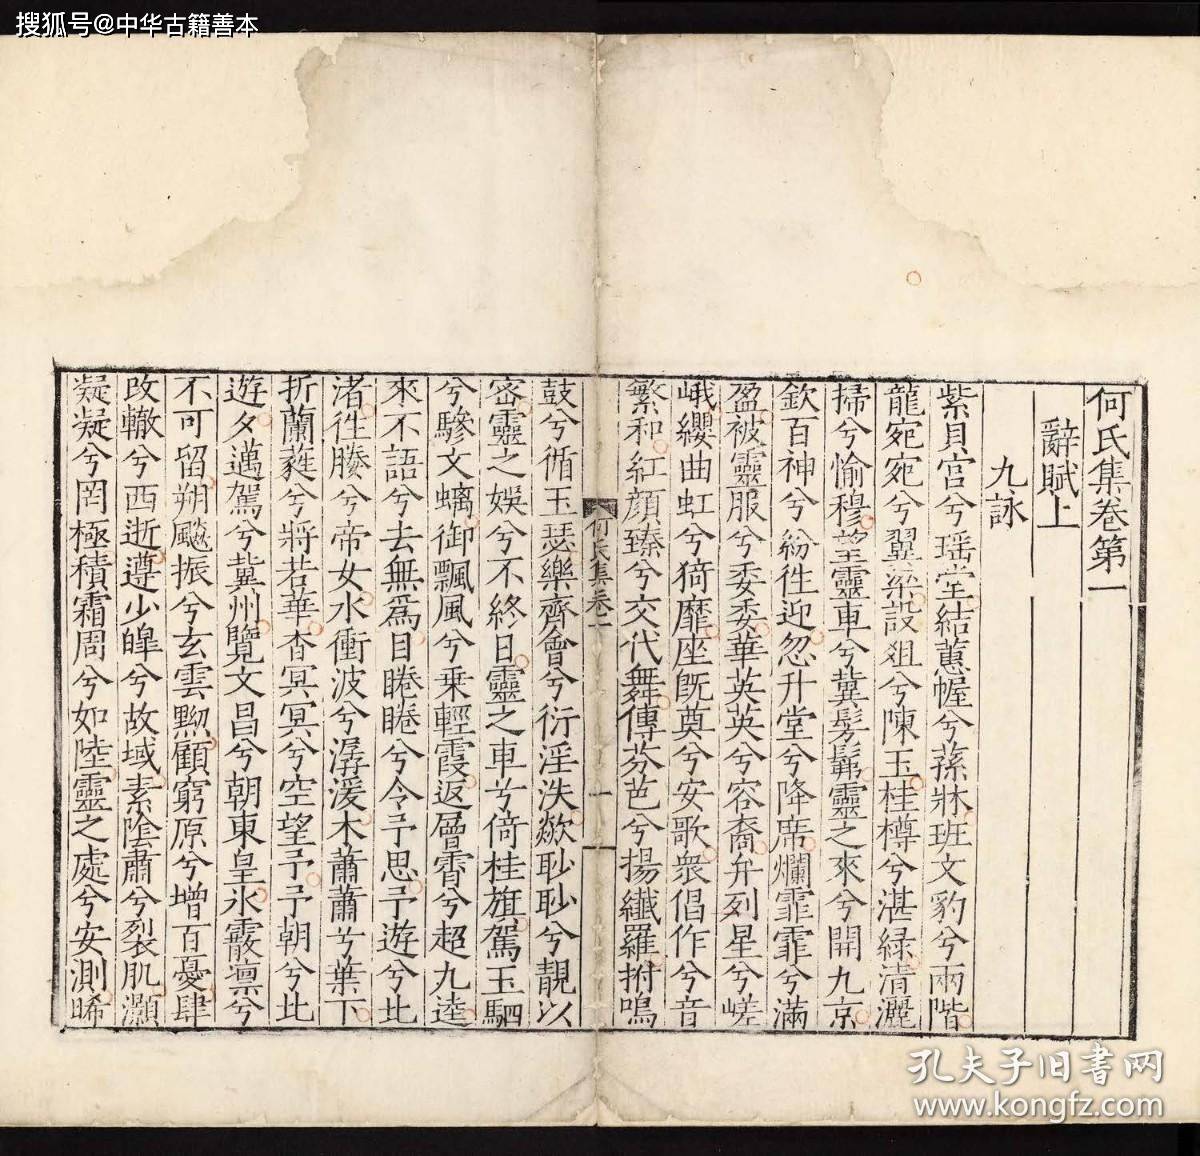 搜狐号@中华古籍善本
何氏集卷第一
辭賦上
九詠
紫貝宫兮瑶堂結蕙幄兮蓀牀班文豹兮兩階
龍宛宛兮翼梁設爼兮陳玉桂樽兮湛綠清灑
掃兮愉穆望靈車兮冀髣髴靈之來兮開九京
欽百神兮紛徃迎忽升堂兮降席爛霏霏兮滿
盈被靈服兮委委華英英兮容裔弁列星兮嵯
峨纓曲虹兮猗靡座旣奠兮安歌衆倡作兮音
繁和紅顔臻兮交代舞傳芬芭兮揚纖羅拊鳴
何氏集卷一
一
鼓兮循玉瑟樂齊會兮衍淫泆歘耾耾兮靚以
宻靈之娛兮不終日靈之車兮倚桂旗駕玉駟
兮驂文螭御飄風兮乗輕霞返層霄兮超九逵
來不語兮去無爲目睠睠兮令予思予遊兮北
渚徃媵兮帝女水衝波兮潺湲木蕭蕭兮葉下
折蘭蕤兮將若華杳冥冥兮空望予予朝兮北
遊夕邁駕兮冀州覽文昌兮朝東皇氷霰凛兮
不可留朔飈振兮玄雲黝顧窮原兮增百憂肆
改轍兮西逝遵少皥兮故域素隂肅兮裂肌灝
凝凝兮罔極積霜周兮如陸靈之處兮安測晞
孔夫子旧书网
www.kongfz.com